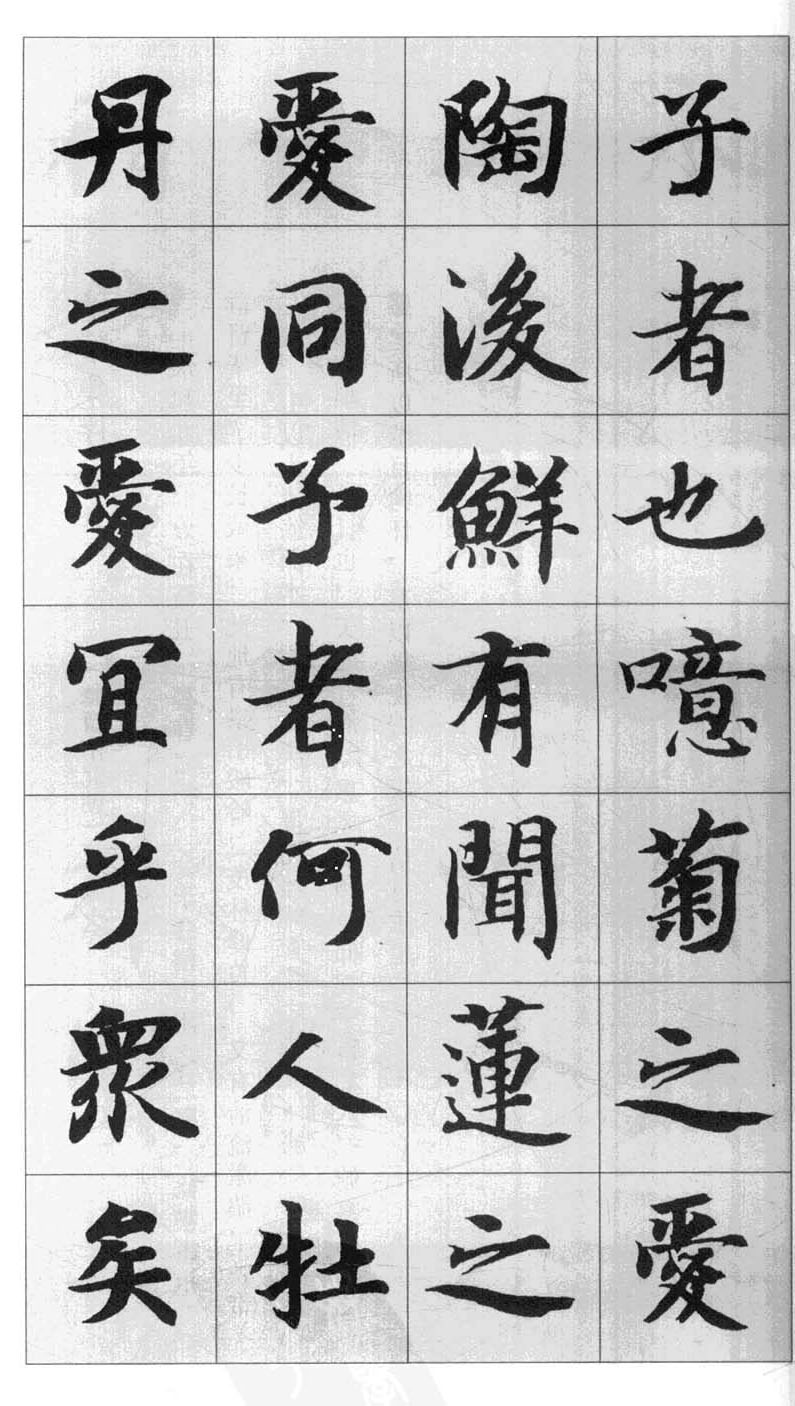 子者也噫菊之愛
陶後鮮有聞蓮之
愛同予者何人牡
丹之愛宜乎眾矣